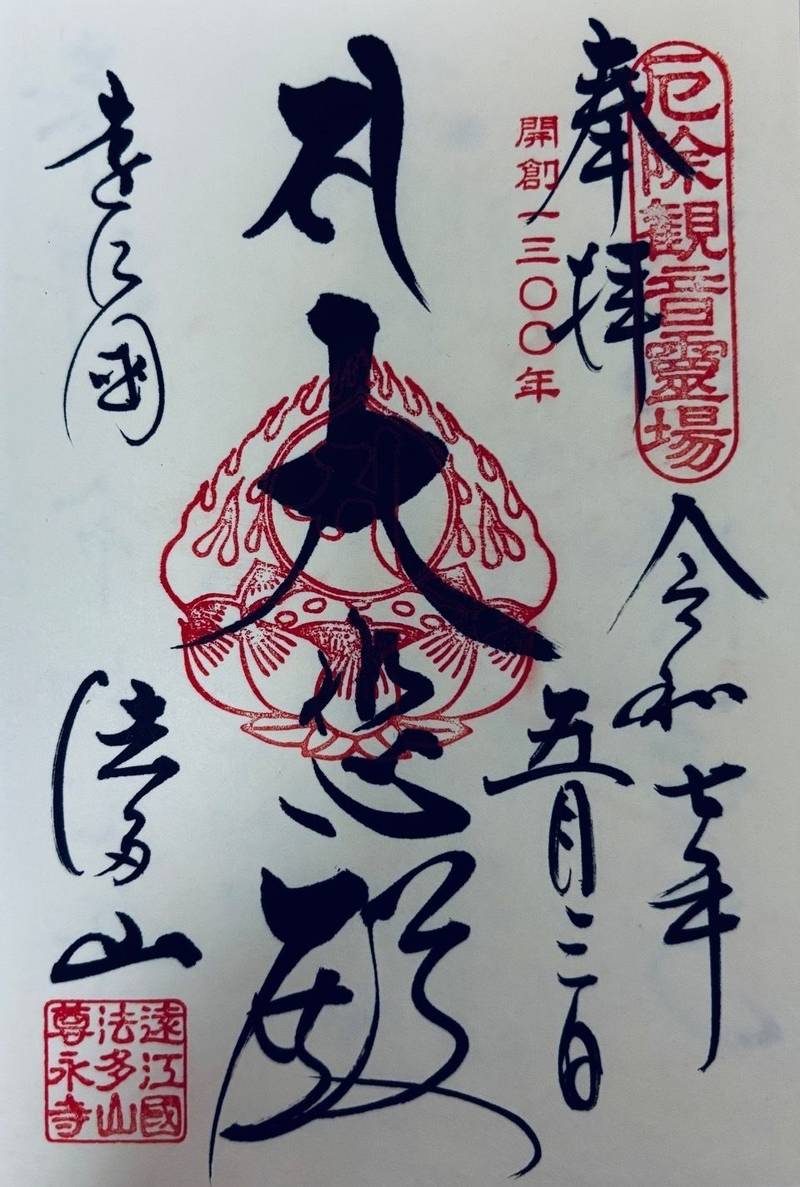 厄除観音霊場
奉拝
開創一三〇〇年
令和七年
五月三日
大悲殿
遠江國
法多山
遠江國
法多山
尊永寺